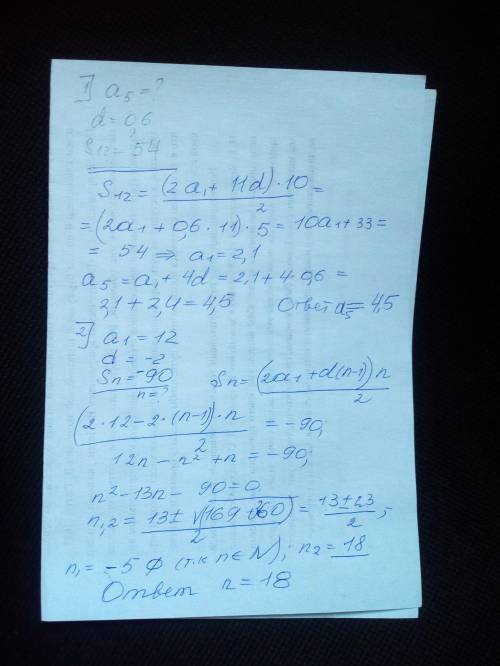 1] a₅ = ?
d = 0,6
S₁₂ = 54
S₁₂ = (2a₁ + 11d)·10 / 2 =
= (2a₁ + 0,6·11)·5 = 10a₁ + 33 =
= 54 ⇒ a₁ = 2,1
a₅ = a₁ + 4d = 2,1 + 4·0,6 =
2,1 + 2,4 = 4,5 Ответ a₅ = 4,5
2] a₁ = 12
d = -2
Sn = -90
n = ? Sn = (2a₁ + d(n-1))n / 2
(2·12 - 2·(n-1))·n / 2 = -90;
12n - n² + n = -90;
n² - 13n - 90 = 0
n₁,₂ = 13 ± √(169 + 360) / 2 = 13 ± 23 / 2 ;
n₁ = -5 ∅ (т.к n ∈ N); n₂ = 18
Ответ n = 18